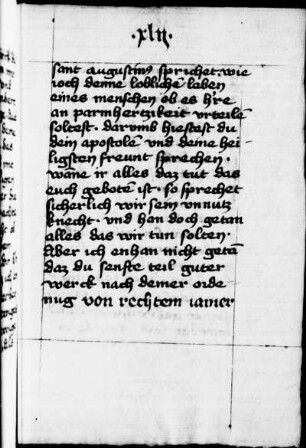 ·xlij·
sant augustinus sprichet. wie
ioch deinne lobliche leben
eines menschen ob es h're
an parmhertzikeit vrteilē
soltest. darvmb hiestest du
dein apostolē vnd deine hei-
ligsten freunt sprechen.
wāne ir alles daz tut das
euch gebotē ist. so sprechet
sicherlich wir sein vnnutz
knecht. vnd han doch getan
alles das wir tūn solten.
Aber ich enhan nicht getā
daz du senfte teil guter
werck nach deiner orde-
nug von rechtem iamer